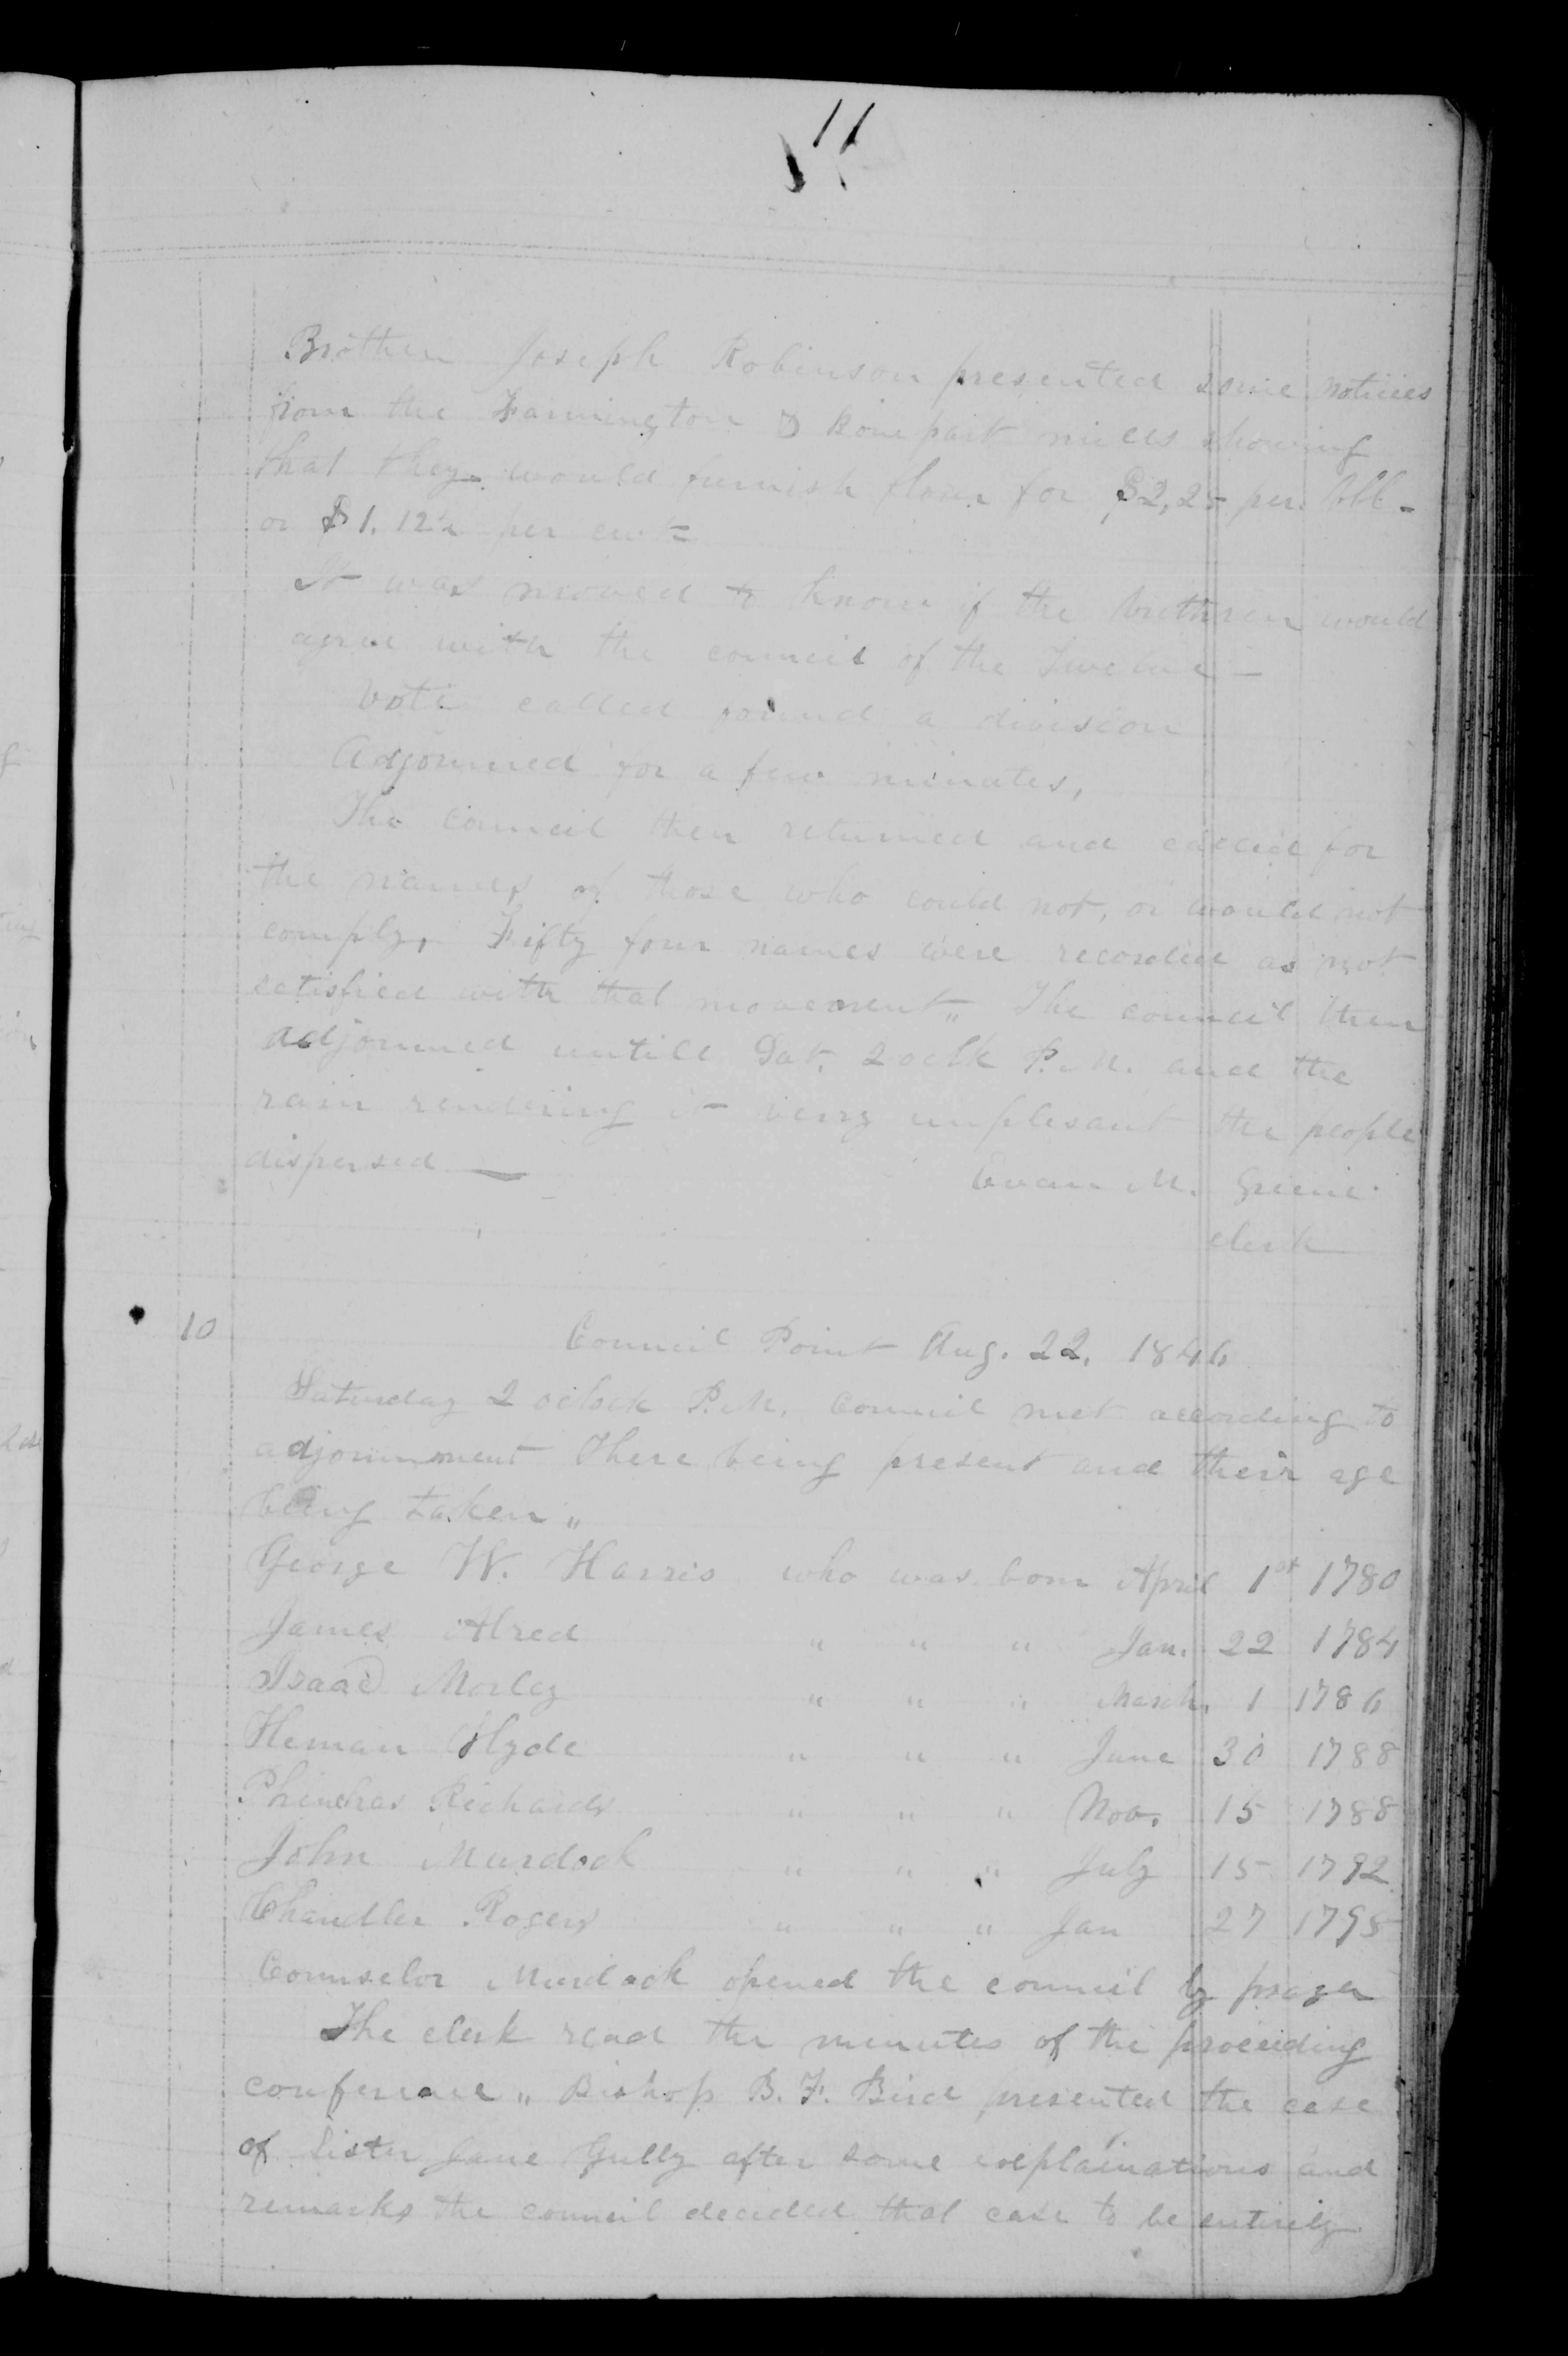 11
Brother Joseph Robinson presented some notices
from the Farmington & Bonepart mills showing
that they would furnish flour for $2,25 per bbl-
or $1.12½ per cwt
It was moved to know if the brethren would
agree with the council of the Twelve—
Vote called found a division
Adjourned for a few minutes,
The council then returned and called for
the names of those who could not, or would not
comply, Fifty four names were recorded as not
satisfied with that movement„ The council then
adjourned untill Sat. 2 oclk P.M. and the
rain rendering it very unplesant the people
dispersed —
Evan M. Greene
clerk
10
Council Point Aug. 22, 1846
Saturday 2 oclock P.M. Council met according to
adjournment There being present and their age
being taken„
George W. Harris who was born April 1st 1780
James Alred " " " Jan. 22 1784
Isaac Morley " " " March. 1 1786
Heman Hyde " " " June 30 1788
Phinehas Richards " " " Nov. 15 1788
John Murdock " " " July 15 1792
Chandler Rogers " " " Jan 27 1795
Counselor Murdock opened the council by prayer
The clerk read the minutes of the proceeding
conference„ Bishop B. F. Bird presented the case
of Sister Jane Gully after some explainations and
remarks the council decided that case to be entirely